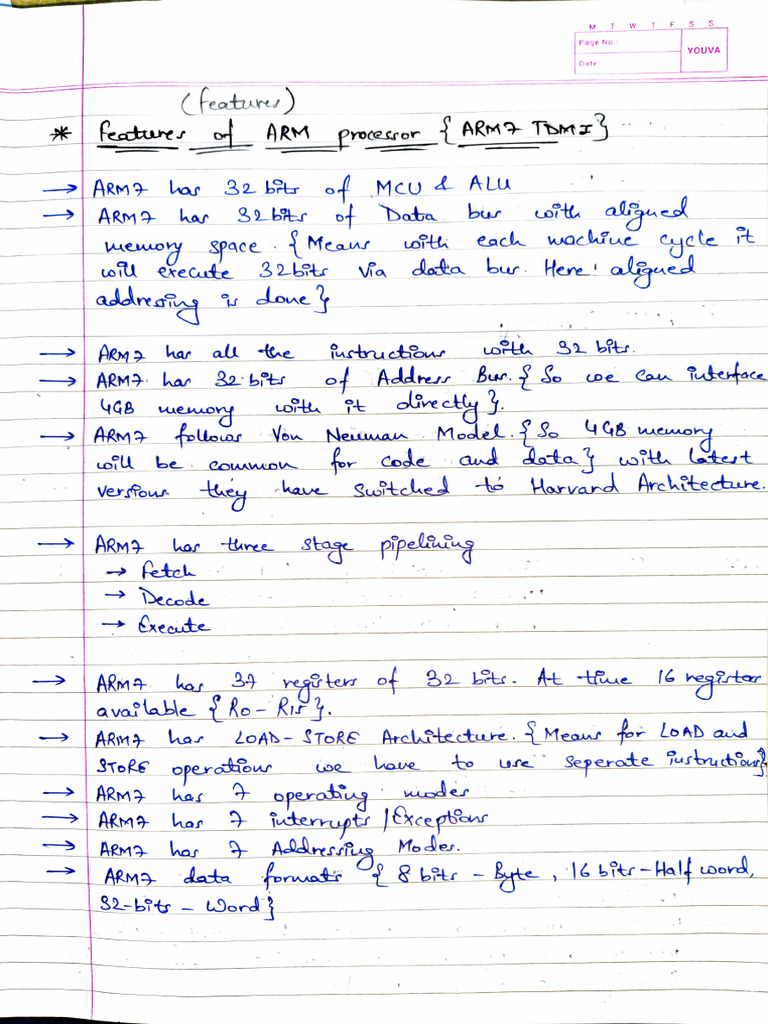 M T W T F S S
Page No.:
YOUVA
Date
(features)
* features of ARM processor {ARM7 TDMI}
→ ARM7 has 32 bits of MCU & ALU
→ ARM7 has 32bits of Data bus with aligned
memory space. {Means with each machine cycle it
will execute 32bits via data bus. Here aligned
addressing is done}
→ ARM7 has all the instructions with 32 bits.
→ ARM7 has 32 bits of Address Bus. {So we can interface
4GB memory with it directly}.
→ ARM7 follows Von Neuman Model. {So 4GB memory
will be common for code and data} with latest
versions they have switched to Harvard Architecture.
→ ARM7 has three stage pipelining
→ Fetch
→ Decode
→ Execute
→ ARM7 has 37 registers of 32 bits. At time 16 registers
available {R0 - R15}.
→ ARM7 has LOAD-STORE Architecture. {Means for LOAD and
STORE operations we have to use seperate instructions}
→ ARM7 has 7 operating modes
→ ARM7 has 7 interrupts /Exceptions
→ ARM7 has 7 Addressing Modes.
→ ARM7 data formats {8 bits - Byte, 16 bits - Half word,
32-bits - Word}